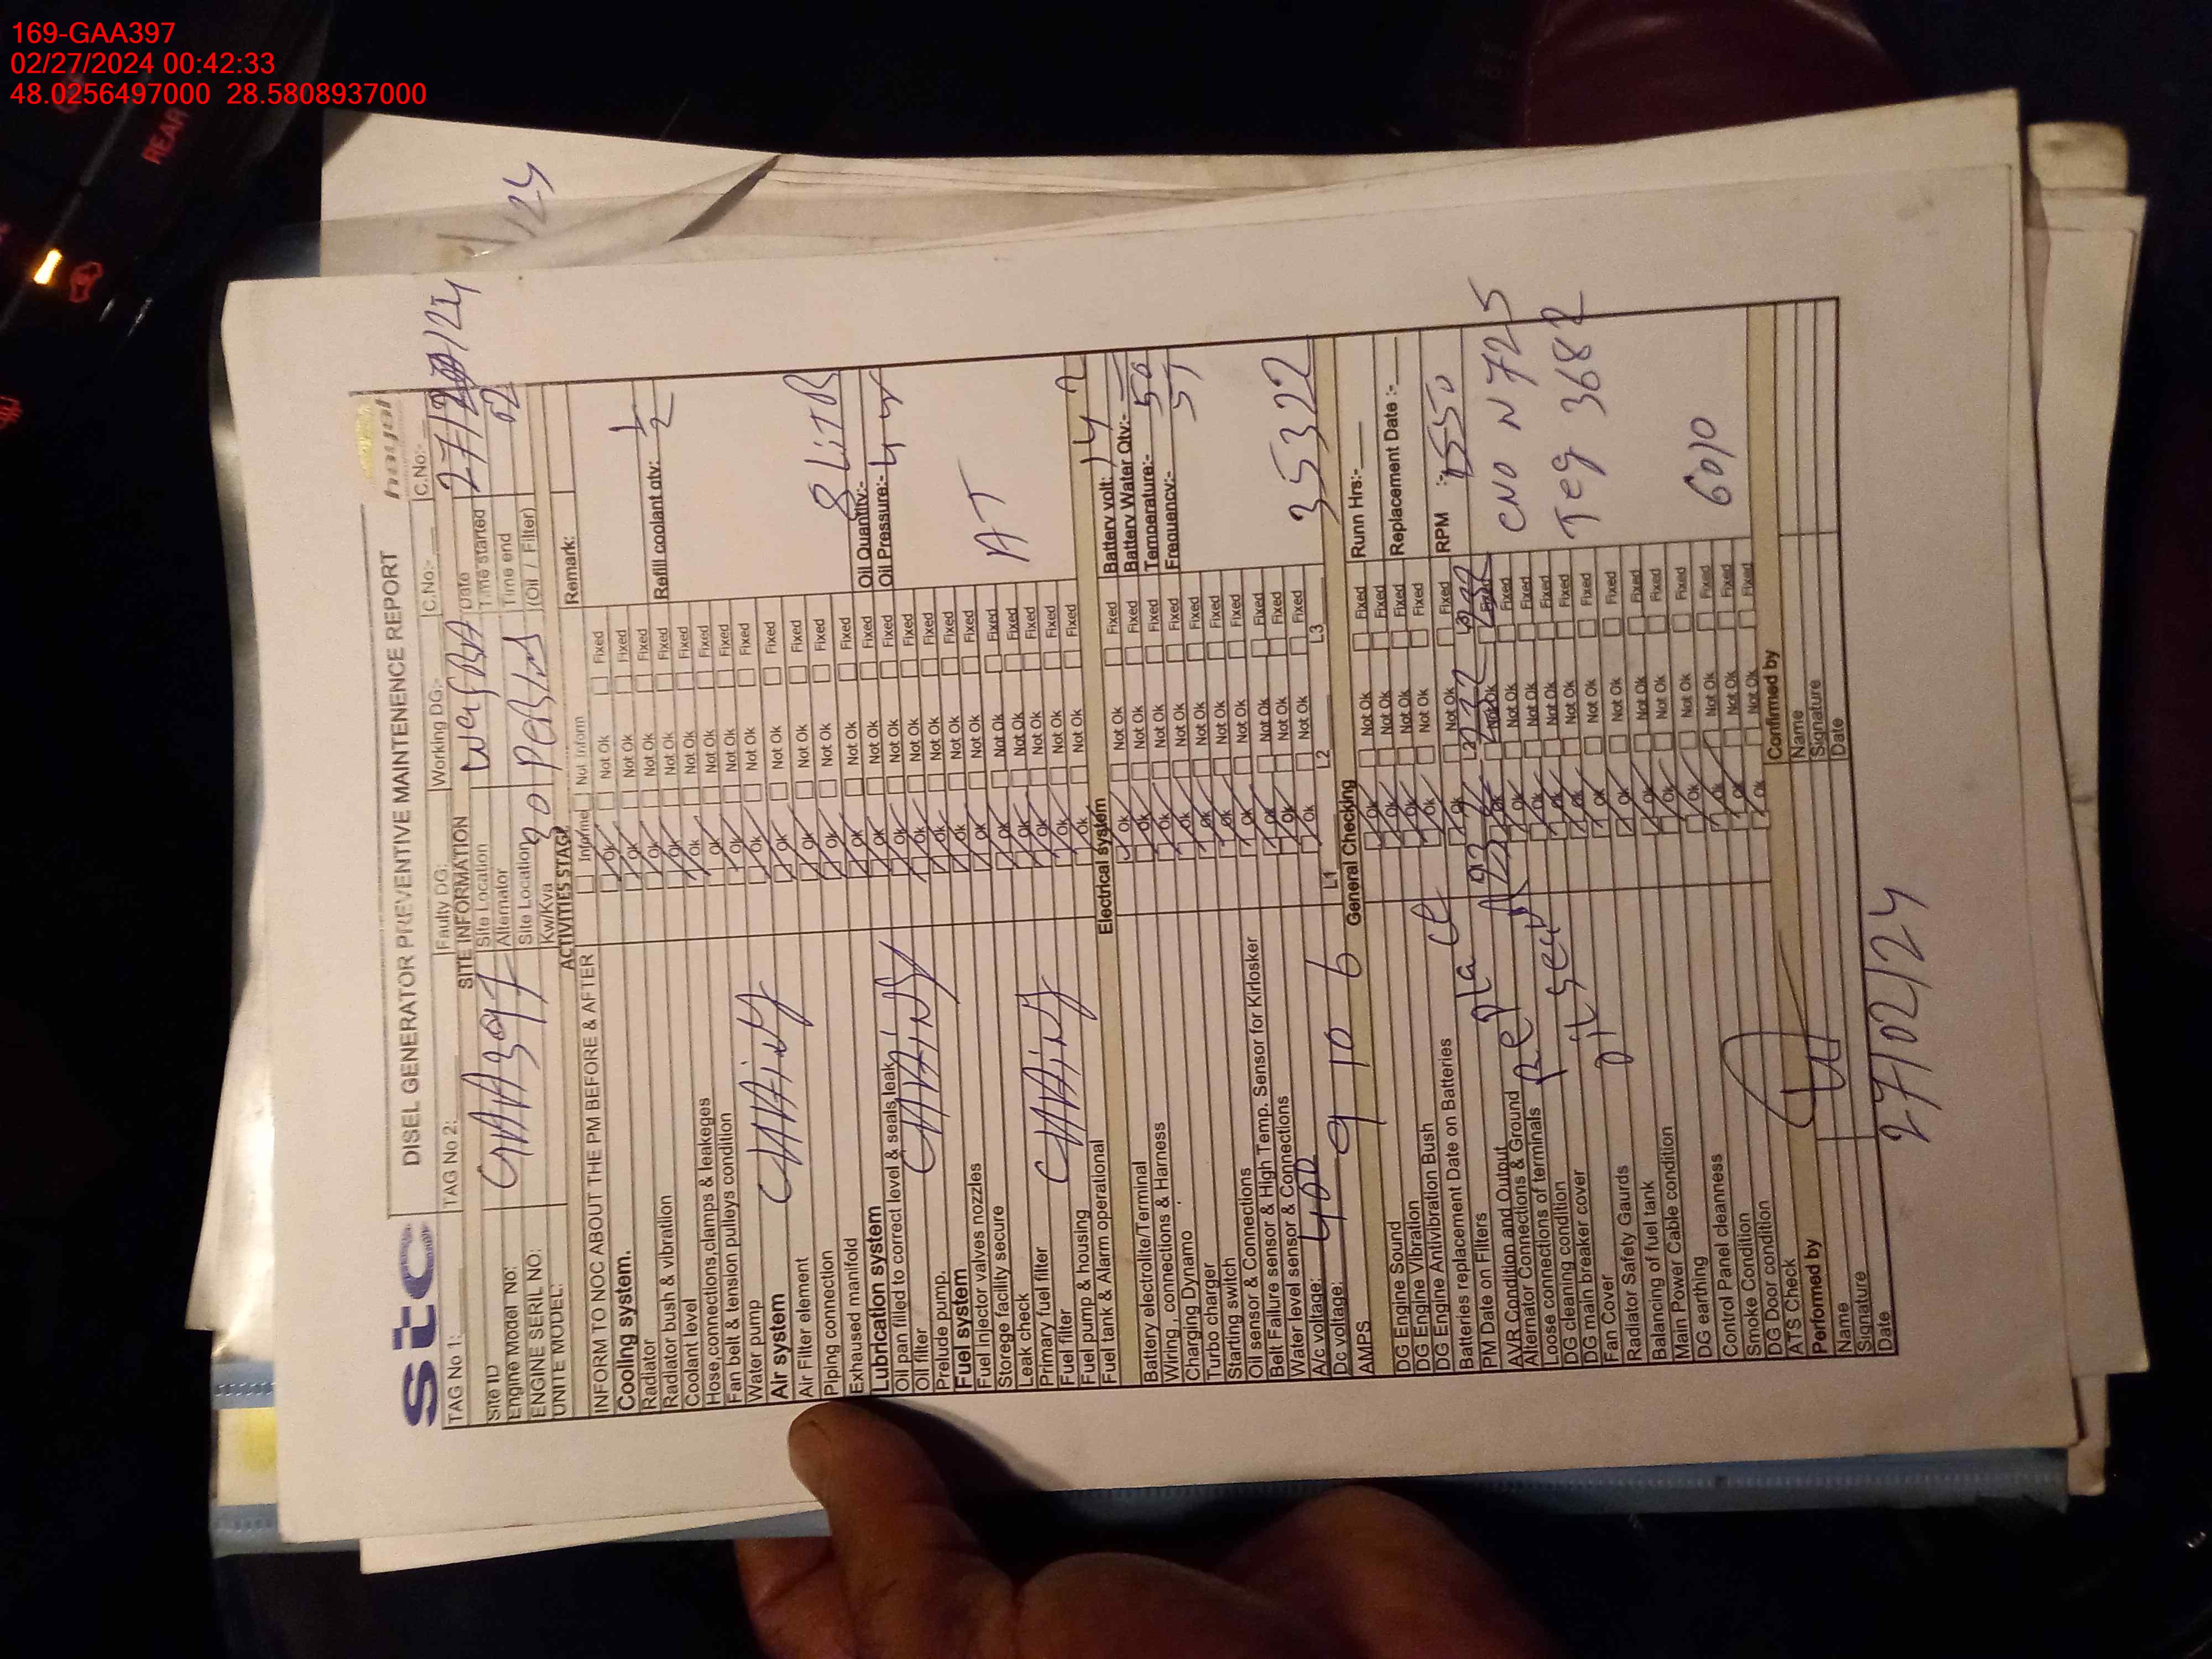 169-GAA397
02/27/2024 00:42:33
48.0256497000 28.5808937000
REAR
/24
stc
DISEL GENERATOR PREVENTIVE MAINTENENCE REPORT
TAG No 1: TAG No 2: Faulty DG: Working DG:- C.No:- C.No:-
SITE INFORMATION
Site ID GAA397 Site Location Date 27/ /24
Engine Model No: Alternator Time started
ENGINE SERIL NO: Site Location Time end
UNITE MODEL: Kw/Kva 30 (Oil / Filter)
ACTIVITIES STAGE Remark:
INFORM TO NOC ABOUT THE PM BEFORE & AFTER Informe Not Inform
Cooling system. Ok Not Ok Fixed
Radiator Ok Not Ok Fixed
Radiator bush & vibration Ok Not Ok Fixed Refill coolant qty: 1/2
Coolant level Ok Not Ok Fixed
Hose,connections,clamps & leakeges Ok Not Ok Fixed
Fan belt & tension pulleys condition Ok Not Ok Fixed
Water pump Ok Not Ok Fixed
Air system
Air Filter element Ok Not Ok Fixed
Piping connection Ok Not Ok Fixed
Exhaused manifold Ok Not Ok Fixed
Lubrication system 8 LiTR
Oil pan filled to correct level & seals,leak Ok Not Ok Fixed Oil Quantity:-
Oil filter Ok Not Ok Fixed Oil Pressure:-
Prelude pump. Ok Not Ok Fixed
Fuel system
Fuel injector valves nozzles Ok Not Ok Fixed
Storege facility secure Ok Not Ok Fixed AT
Leak check Ok Not Ok Fixed
Primary fuel filter Ok Not Ok Fixed
Fuel filter Ok Not Ok Fixed
Fuel pump & housing Ok Not Ok Fixed
Fuel tank & Alarm operational Ok Not Ok Fixed
Electrical system
Battery electrolite/Terminal Ok Not Ok Fixed Battery volt: 14 2
Wiring , connections & Harness Ok Not Ok Fixed Battery Water Qty:-
Charging Dynamo Ok Not Ok Fixed Temperature:- 50
Turbo charger Ok Not Ok Fixed Frequency:- 51
Starting switch Ok Not Ok Fixed
Oil sensor & Connections Ok Not Ok Fixed
Belt Failure sensor & High Temp. Sensor for Kirlosker Ok Not Ok Fixed
Water level sensor & Connections Ok Not Ok Fixed
A/c voltage: 400 35322
Dc voltage: L1 L2 L3
AMPS 9 10 6 General Checking
DG Engine Sound Ok Not Ok Fixed Runn Hrs:-
DG Engine Vibration Ok Not Ok Fixed
DG Engine Antivibration Bush Ok Not Ok Fixed Replacement Date :-
Batteries replacement Date on Batteries Ok Not Ok Fixed
PM Date on Filters RPM :- 1550
AVR Condition and Output
Alternator Connections & Ground Ok Not Ok Fixed CNO N 725
Loose connections of terminals Ok Not Ok Fixed
DG cleaning condition Ok Not Ok Fixed Teg 3682
DG main breaker cover Ok Not Ok Fixed
Fan Cover Ok Not Ok Fixed
Radiator Safety Gaurds Ok Not Ok Fixed
Balancing of fuel tank Ok Not Ok Fixed
Main Power Cable condition Ok Not Ok Fixed
DG earthing Ok Not Ok Fixed 6010
Control Panel cleanness Ok Not Ok Fixed
Smoke Condition Ok Not Ok Fixed
DG Door condition Ok Not Ok Fixed
ATS Check
Performed by Confirmed by
Name Name
Signature Signature
Date Date
27/02/24